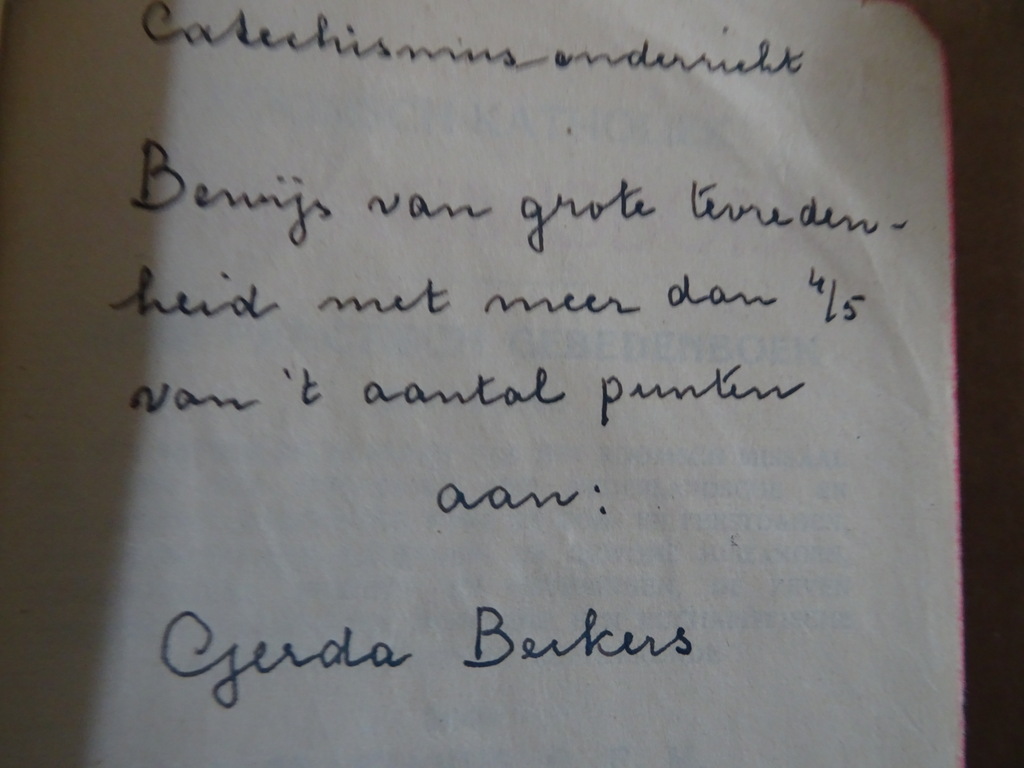 Catechismusonderricht
Bewijs van grote tevreden-
heid met meer dan 4/5
van 't aantal punten
aan:
Gerda Beckers